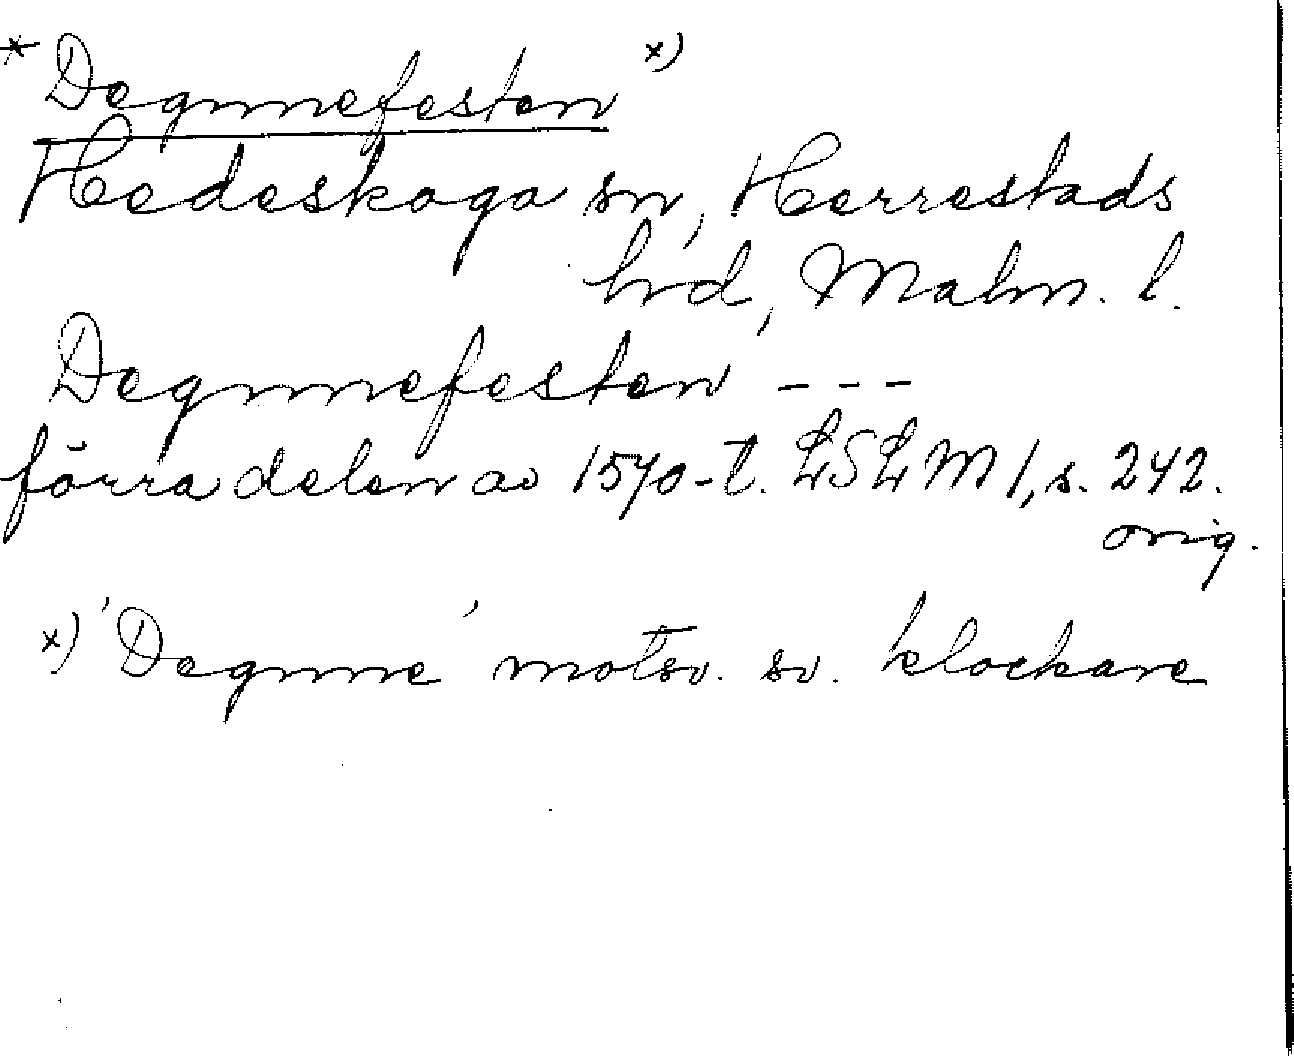 * Degnnefesten x)
Hedeskoga sn, Herrestads
hrd, Malm. l.
Degnnefesten - - -
förra delen av 1570-t. LSLM 1, s. 242.
orig.
x) 'Degnne' motsv. sv. klockare